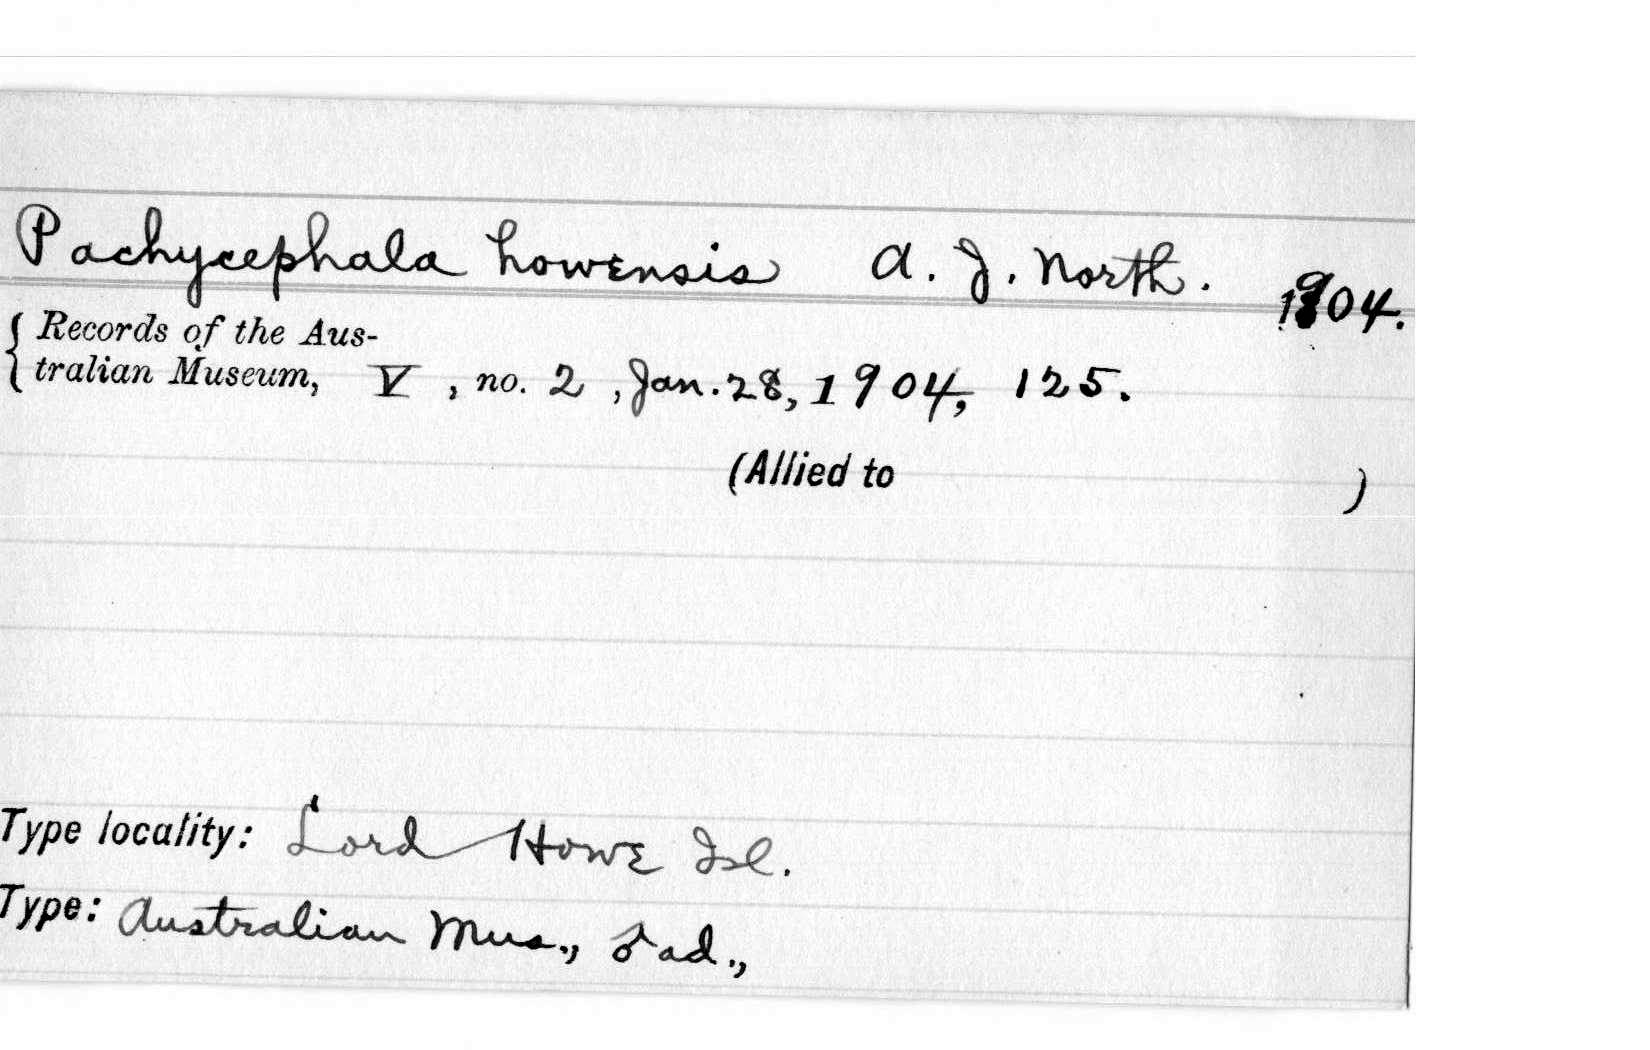 Pachycephala howensis A. J. North. 1904.
{ Records of the Aus-
tralian Museum, V, no. 2, Jan. 28, 1904, 125.
(Allied to )
Type locality: Lord Howe Isl.
Type: Australian Mus., ♂ ad.,